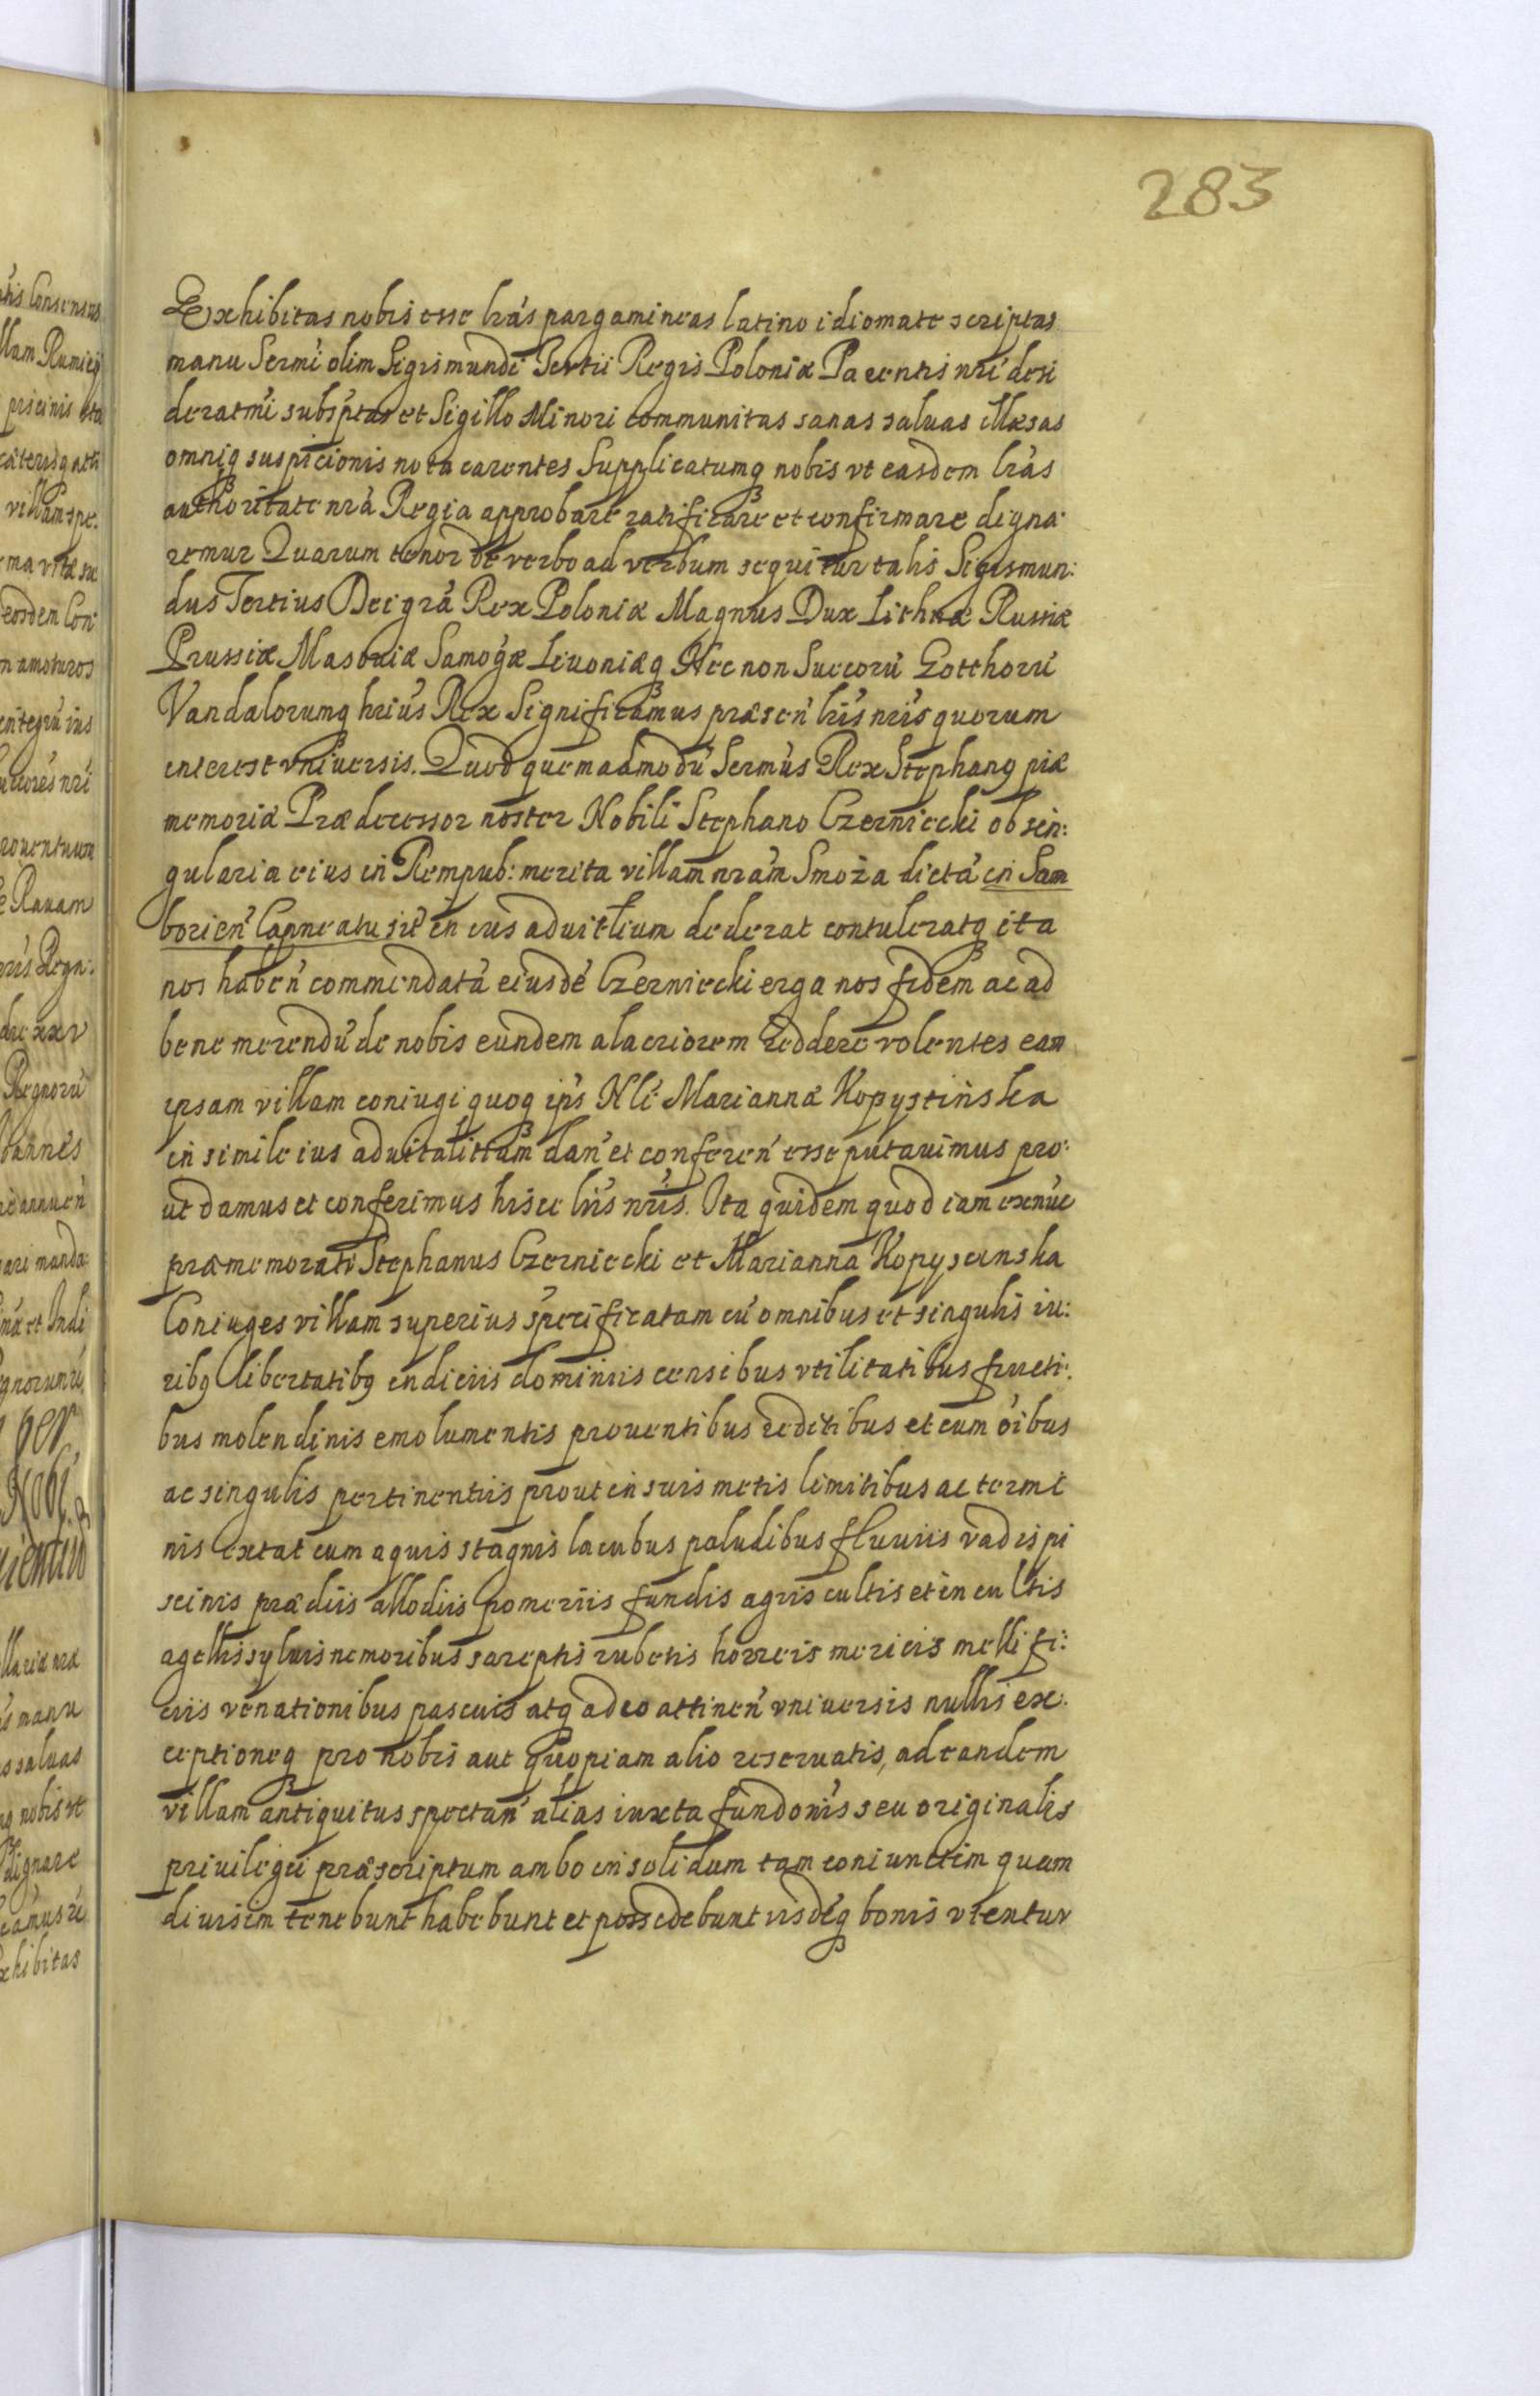 283
Exhibitas nobis esse lrás pargamineas latino idiomate scriptas
manu Sermi olim Sigismundi Tertii Regis Poloniæ Parentis nri desi
deratmi subsptas et Sigillo Minori communitas sanas saluas illæsas
omniq suspicionis nota carentes Supplicatumq nobis vt easdem lrás
authoritate nrá Regia approbare ratificare et confirmare digna:
remur Quarum tenor de verbo ad verbum sequitur talis Sigismun:
dus Tertius Dei grá Rex Poloniæ Magnus Dux Lithuæ Russiæ
Prussiæ Masouiæ Samogæ Liuoniæq Nec non Suecorú Gotthorú
Vandalorumq hrius Rex Significamus præsen lris nris quorum
interest vniuersis. Quod quemadmodú Sermus Rex Stephanq piæ
memoriæ Prædecessor noster Nobili Stephano Czerniecki ob sin:
gularia eius in Rempub: merita villam nram Smoża dictá in Sam
borien Capneatu sitá in ius aduitlium dederat contuleratq ita
nos haben commendatá eiusdé Czerniecki erga nos fidem ac ad
bene merendú de nobis eundem alacriorem reddere volentes eam
ipsam villam coniugi quoq ipis Nli Mariannæ Kopystinska
in simile ius aduitalittam dan et conferen esse putauimus pro:
ut damus et conferimus hisce lris nris. Ita quidem quod iam exnúc
præmemorati Stephanus Czerniecki et Marianna Kopyscinska
Coniuges villam superius specificatam cú omnibus et singulis iu:
ribq libertatibq indiciis dominiis censibus vtilitatibus fructi:
bus molendinis emolumentis prouentibus reditibus et cum oibus
ac singulis pertinentiis prout in suis metis limitibus ac termi
nis extat cum aquis stagnis lacubus paludibus fluuiis vadis pi
scinis prædiis allodiis pomeriis fundis agris cultis et incultis
agellis syluis nemoribus sareptis rubetis horreis mericis mellifi:
ciis venationibus pascuis atq adeo attinen vniuersis nullis ex:
ceptioneq pro nobis aut quopiam alio reseruatis, ad eandem
villam antiquitus spectan alias iuxta fundonis seu originalis
priuilegii præscriptum ambo in solidum tam coniunctim quam
diuisim tenebunt habebunt et possedebunt iisdéq bonis vtentur